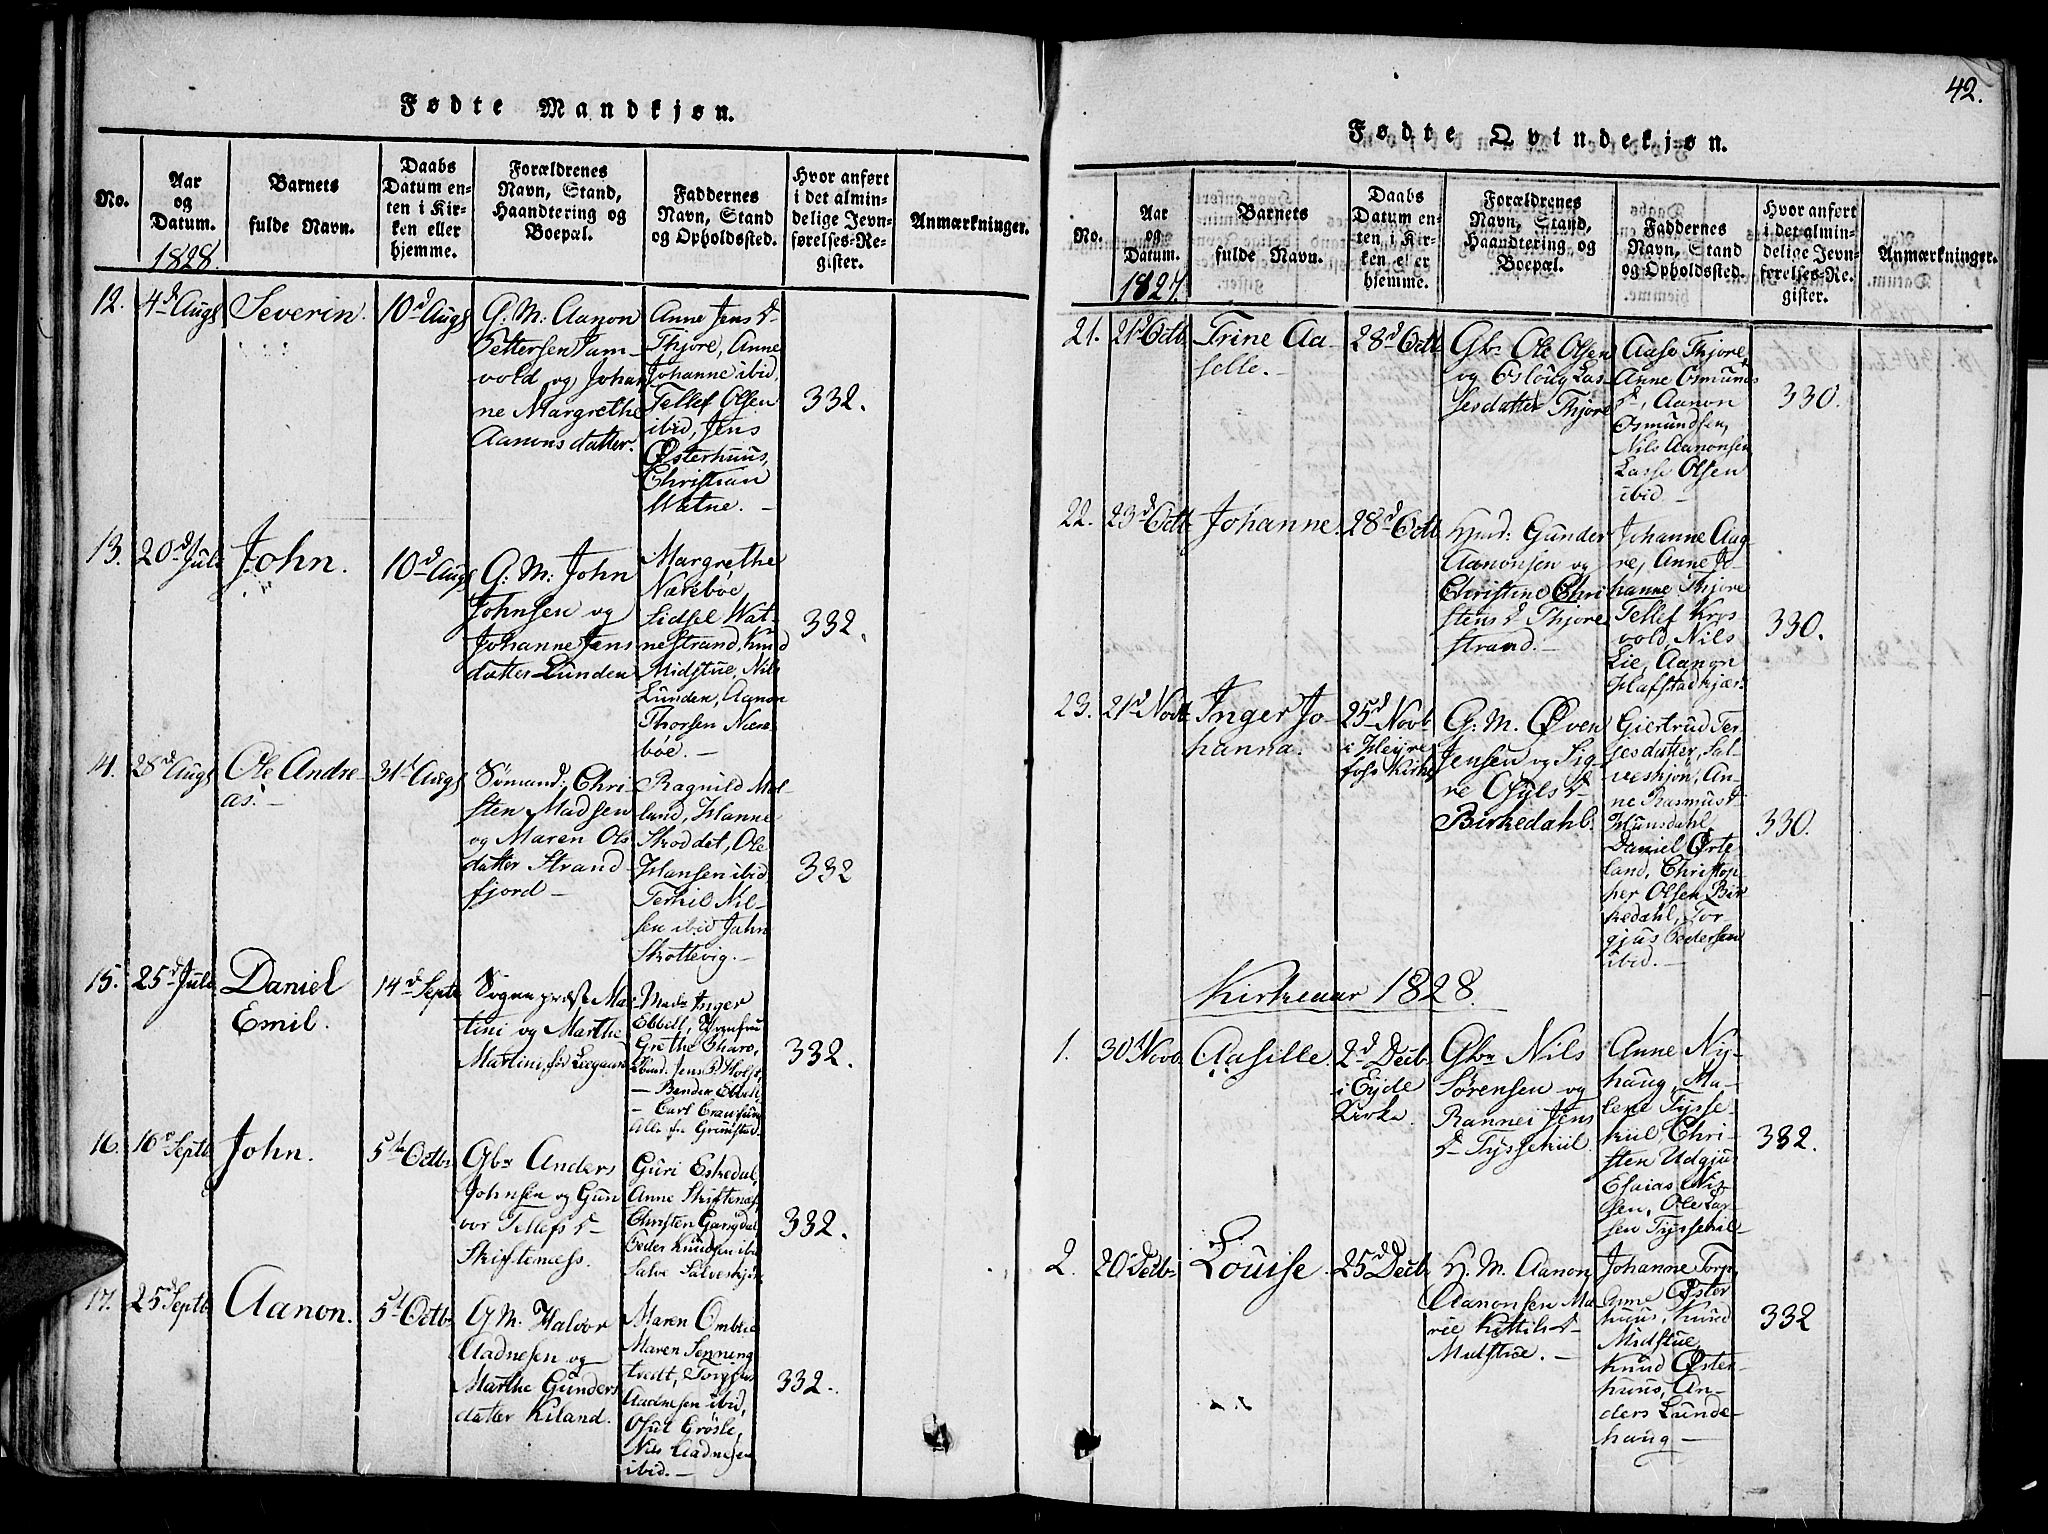 Fødte Mandkjøn.
No.
Aar
og
Datum.
1828.
Barnets
fulde Navn.
Daabs
Datum en-
ten i Kir-
ken eller
hjemme.
Forældrenes
Navn, Stand,
Haandtering og
Boepæl.
Faddernes
Navn, Stand
og Opholdssted.
Hvor anført
i det almin-
delige Jevn-
førelses-Re-
gister.
Anmærkninger.
12.
4d Augs
Severin.
10d Augs
G. M: Aanon
Pettersen
vold og Johan
ne Margrethe
Aanonsdatter.
Anne Jens D
Thjore, Anne
Johanne ibid,
Tellef Olsen
ibid, Jens
Østerhuus,
Christian
Watne. –
332.
13.
20d Juli
John.
10d Augs
G: M: John
Johnsen og
Johanne Jens
datter Lunden
Margrethe
Nærebøe
Sidsel Wat-
nestrand, Knud
Midstue, Nils
Lunden, Aanon
Thorsen Nære-
bøe. –
332.
14.
28d Augs
Ole Andre-
as. –
31d Augs
Sømand: Chri-
sten Madsen
og Maren Ols
datter Strand
fjord –
Ragnild Møl-
land, Hanne
Skoddet, Ole
Hansen ibid
Terkil Nil-
sen ibid John
Skottevig. –
332
15.
25d Juli
Daniel
Emil.
14d Septe
Sognepræst Mar-
tini og Marthe
Martini,
Mads Inger
Ebbell, Jomfru
Grethe
Jens P. Holst,
– Bender Ebbell,
– Carl
Alle fra Grimstad.
332.
16.
16d Septb
John.
5te Octb.
Gbr Anders
Johnsen og Gun
vor Tellefs D
Skiftenæss.
Guri Eskedal,
Anne Skiftenæs,
Christen Gangdal
Peder Knudsen ibid
Salve Salveskjøn
332.
17.
25d Septb
Aanon.
5d Octb.
G M. Halvor
Aadnesen og
Marthe Gunders
datter Kiland.
Maren Omble
Maren Senning
tvedt, Torgjus
Aadnesen ibid,
Osul Grøsle,
Nils Aadnesen
ibid. –
332.
42.
Fødte Qvindekjøn.
No.
Aar
og
Datum.
1827.
Barnets
fulde Navn.
Daabs
Datum en-
ten i Kir-
ken eller
hjemme.
Forældrenes
Navn, Stand,
Haandtering og
Boepæl.
Faddernes
Navn, Stand
og Opholdssted.
Hvor anført
i det almin-
delige Jevn-
førelses-Re-
gister.
Anmærkninger.
21.
21d Octb.
Trine Aa-
selle. –
28d Octb
Gbr Ole Olsen
og Osloug Las-
sesdatter Thjore
Aase Thjore,
Anne Osmunds
D, Aanon
Osmundsen,
Nils Aanonsen
Lasse Olsen
ibid –
330.
22.
23d Octb
Johanne.
28d Octb.
Gunder
Aanonsen og
Christine Chri
stens D Thjore
strand. –
Johanne Aag
re, Anne Jo-
hanne Thjore
Tellef Krys
vold, Nils
Lie, Aanon
Hafstadkjær.
330.
23.
21d Novb
Inger Jo-
hanna.
25d Novb
i Høyre
foss Kirke
G: M. Øven
Jensen og Sig-
ne Osuls D
Birkedahl.
Giertrud Ter-
jesdatter, Sal-
veskjøn, An-
ne Rasmus D
Hunsdahl,
Daniel Ørte
land, Christop-
her Olsen Bir
kedahl, Tor-
gjus Pedersen
ibid. –
330.
Kirkeaar 1828.
1.
30 Novb.
Aasille.
2d Decb.
i Eyde
Kirke
Gbr Nils
Sørensen og
Rannei Jens
D Tyssekiil.
Anne Ny-
haug, Ma-
lene Tysse-
kiil, Chri-
sten Udgjus
Esaias Nil-
sen, Ole Lar-
sen Tyssekil –
332.
2.
20 Decb.
Louise.
25d Decb.
H. M. Aanon
Aanonsen Ma-
rie Kittils D
Midstue. –
Johanne Torp,
Anne Øster
huus, Knud
Midstue
Knud Øster-
huus, An-
ders Lunde-
haug –
332